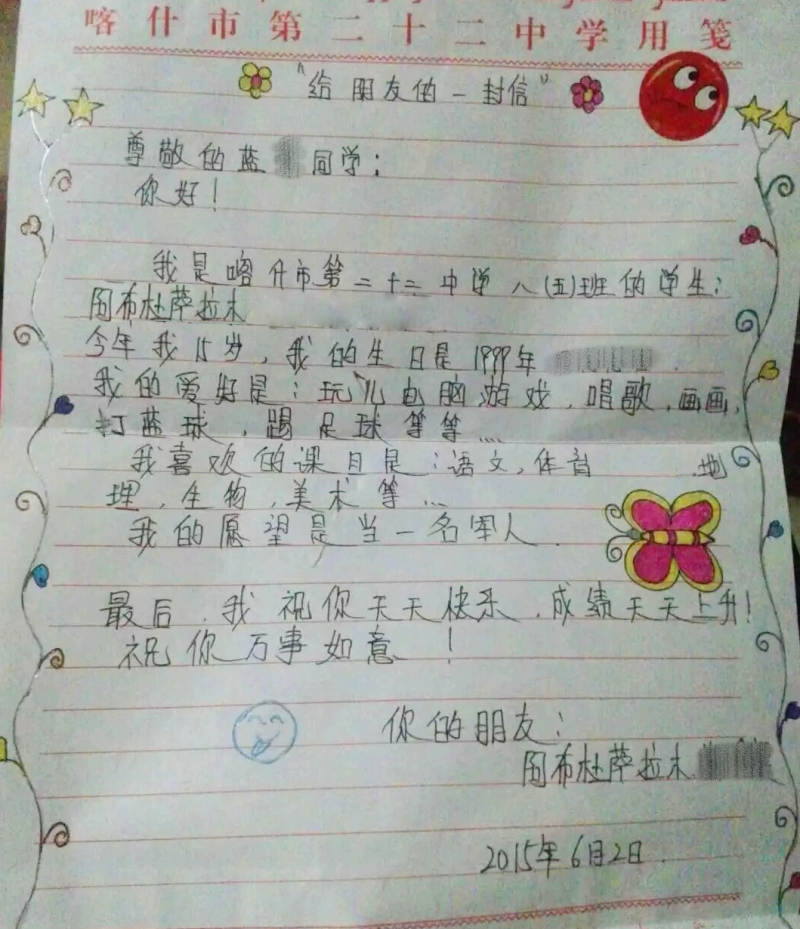 喀什市第二十二中学用笺
“给朋友的一封信”
尊敬的蓝 同学:
你好!
我是喀什市第二十二中学八(五)班的学生:
阿布杜萨拉木
今年我15岁,我的生日是1999年
我的爱好是:玩儿电脑游戏,唱歌,画画,
打蓝球,踢足球等等...
我喜欢的课目是:语文,体育 地
理,生物,美术等...
我的愿望是当一名军人.
最后,我祝你天天快乐,成绩天天上升!
祝你万事如意!
你的朋友:
阿布杜萨拉木
2015年6月2日.